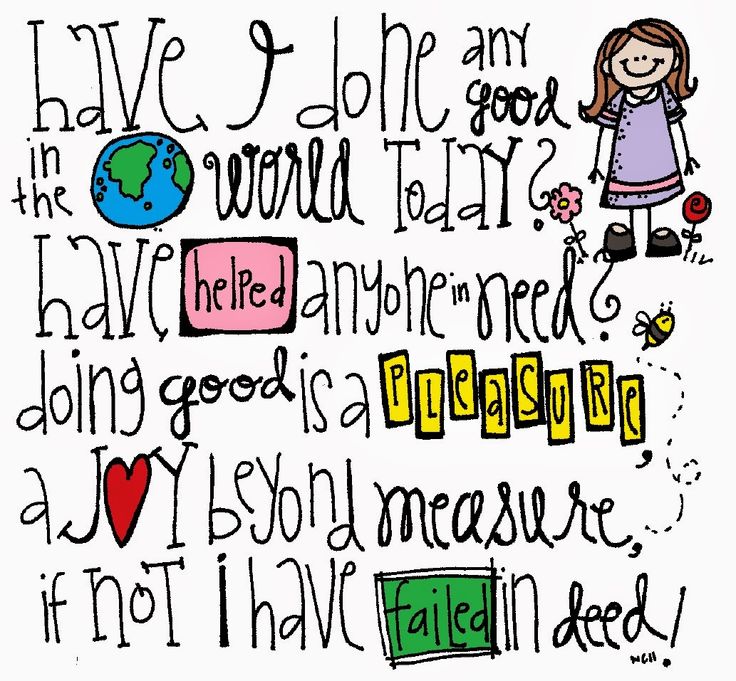 have I done any good
in the world today?
have helped anyone in need?
doing good is a pleasure,
a joy beyond measure,
if not i have failed in deed!
NGH